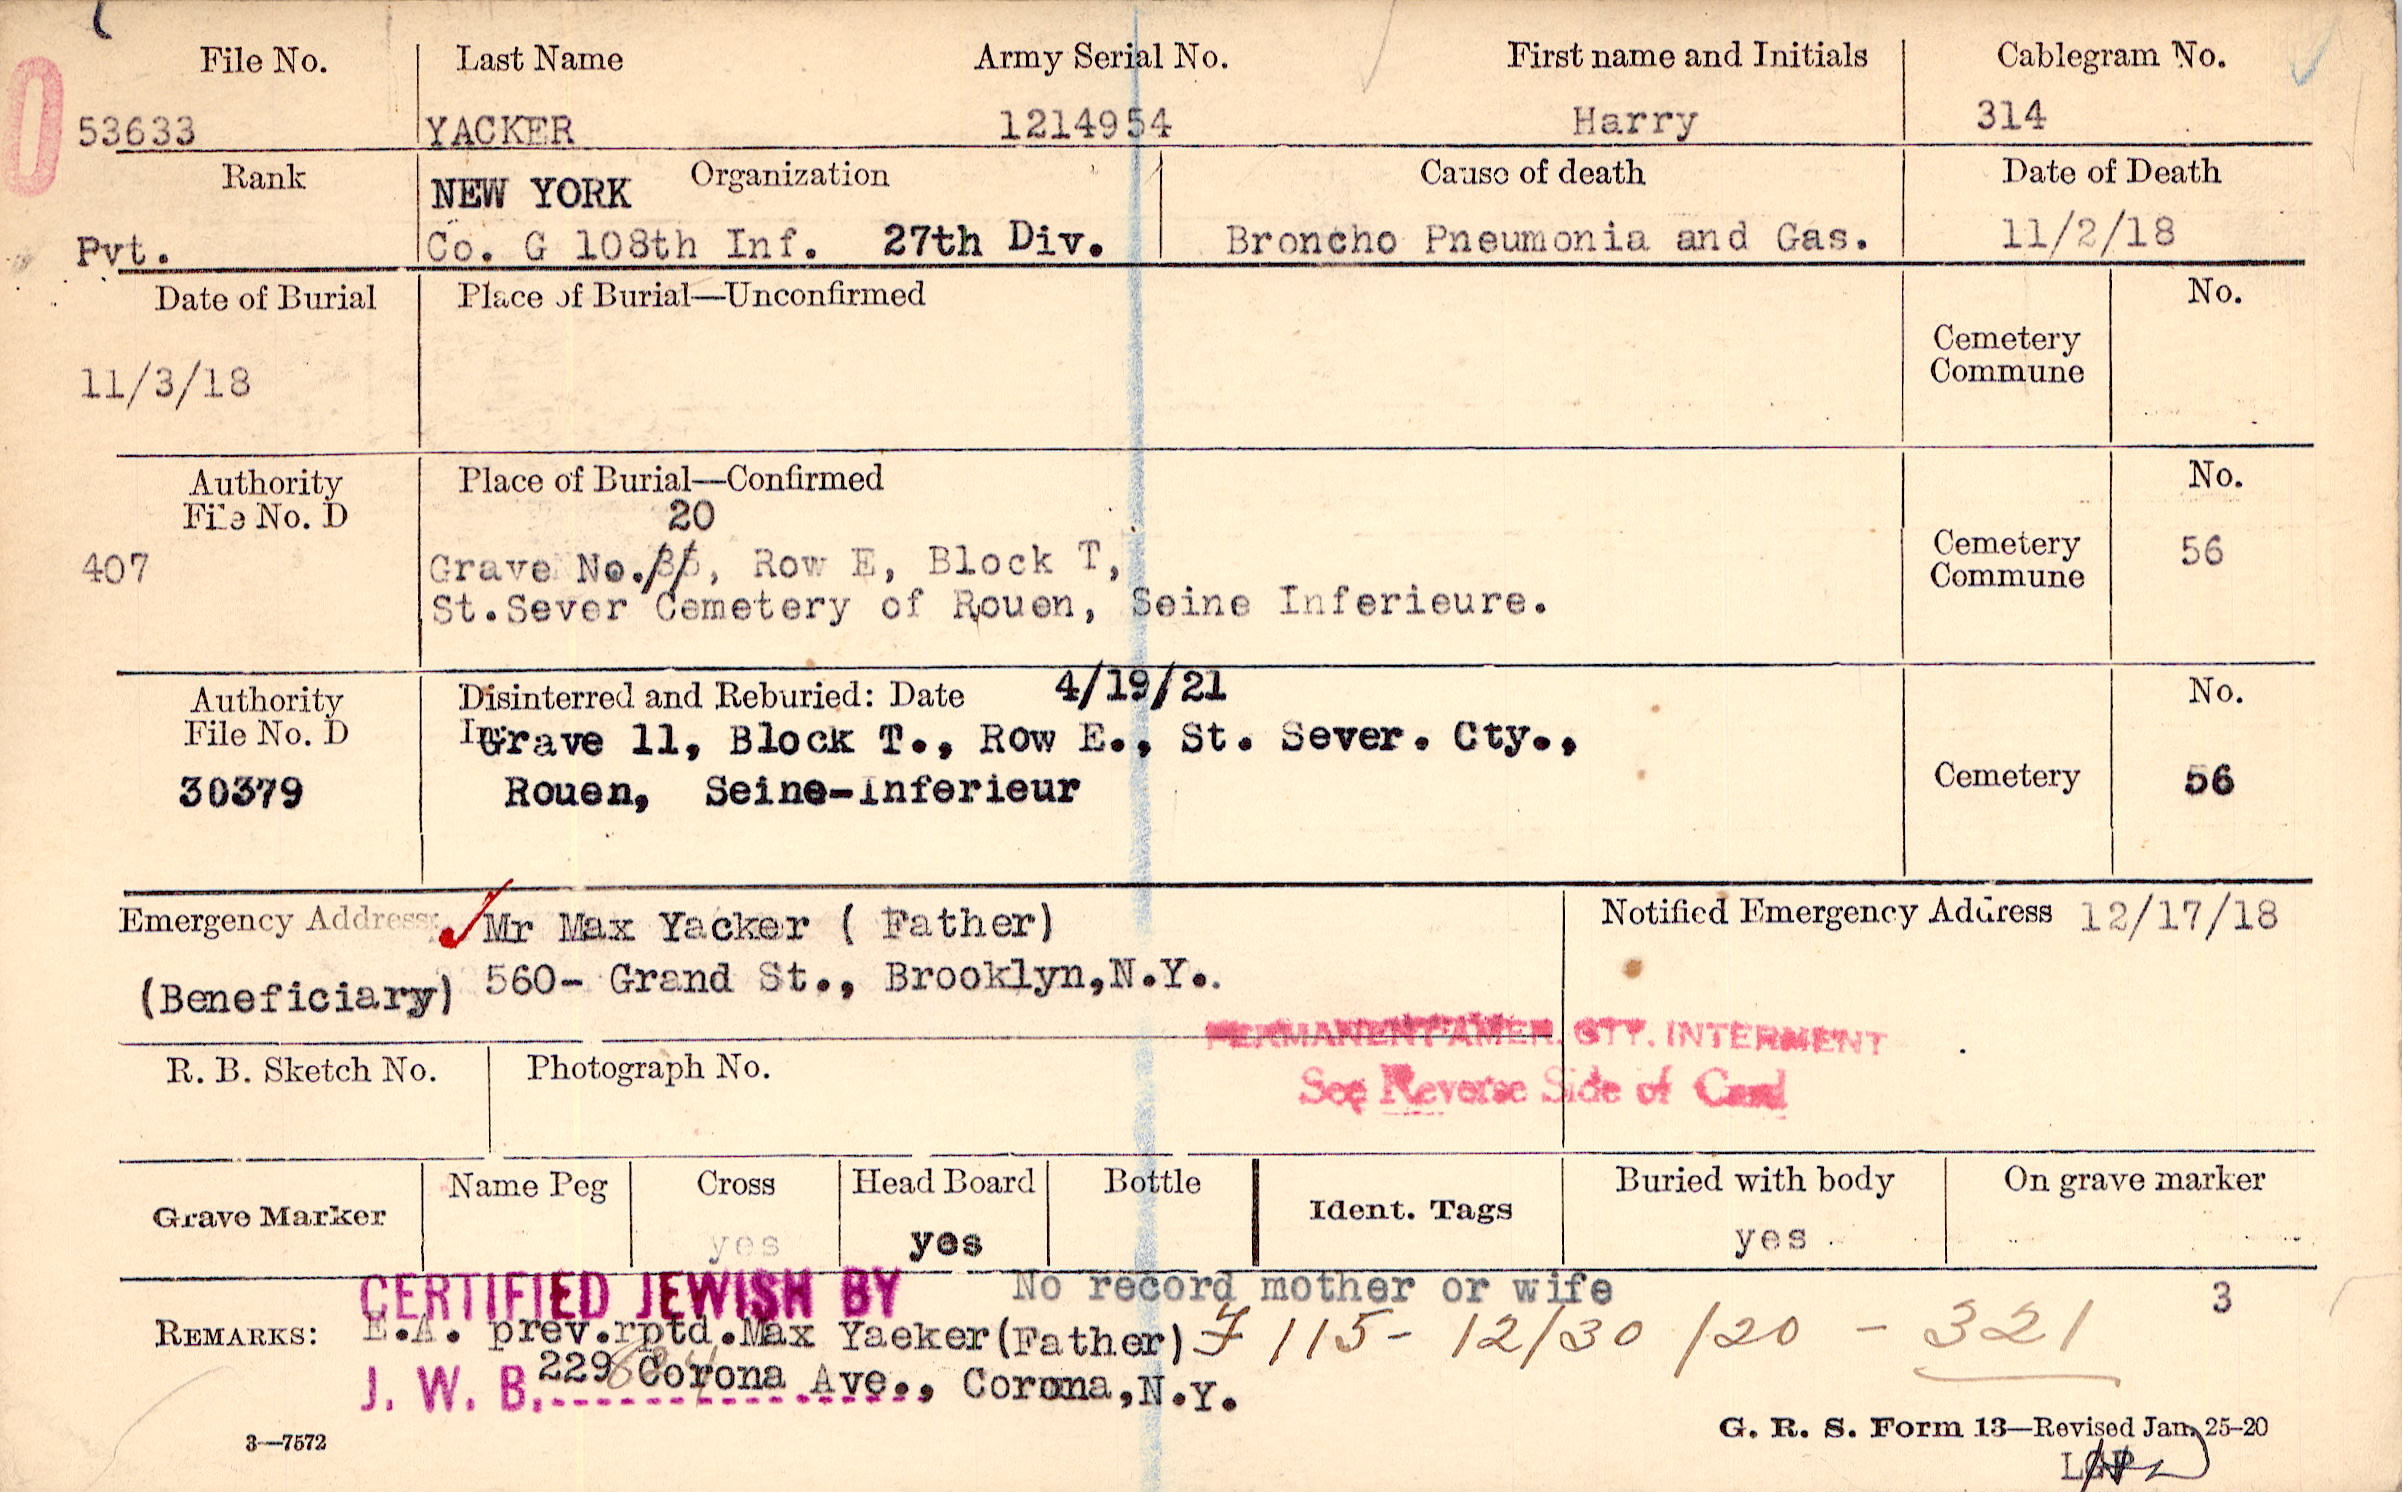 File No. Last Name Army Serial No. First name and Initials Cablegram No.
53633 YACKER 1214954 Harry 314
Rank Organization Cause of death Date of Death
NEW YORK
Pvt. Co. G 108th Inf. 27th Div. Broncho Pneumonia and Gas. 11/2/18
Date of Burial Place of Burial—Unconfirmed No.
Cemetery
Commune
11/3/18
Authority Place of Burial—Confirmed No.
File No. D 20
407 Grave No. , Row E, Block T, Cemetery 56
Commune
St.Sever Cemetery of Rouen, Seine Inferieure.
Authority Disinterred and Reburied: Date 4/19/21 No.
File No. D In Grave 11, Block T., Row E., St. Sever. Cty.,
30379 Rouen, Seine-Inferieur Cemetery 56
Emergency Address: Mr Max Yacker ( Father) Notified Emergency Address 12/17/18
(Beneficiary) 560- Grand St., Brooklyn,N.Y..
PERMANENT AMER. CTY. INTERMENT
See Reverse Side of Card
R. B. Sketch No. Photograph No.
Grave Marker Name Peg Cross Head Board Bottle Ident. Tags Buried with body On grave marker
yes yes yes
CERTIFIED JEWISH BY No record mother or wife 3
REMARKS: E.A. prev.rptd.Max Yaeker(Father) 115- 12/30/20 - 321
J. W. B. 229 Corona Ave., Corona,N.Y.
3—7572 G. R. S. Form 13—Revised Jan. 25-20